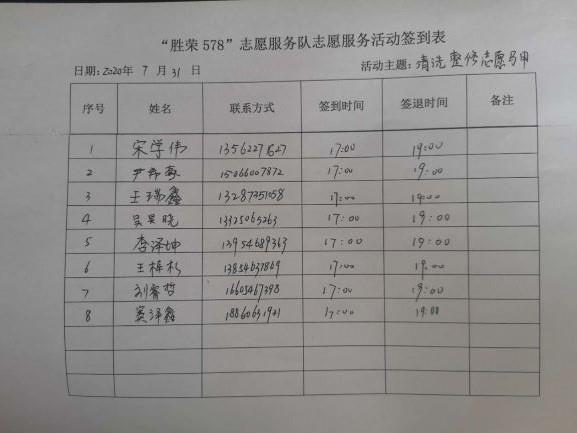 “胜荣 578”志愿服务队志愿服务活动签到表
日期:2020年 7 月 31 日 活动主题:清洗整修志愿马甲
序号 姓名 联系方式 签到时间 签退时间 备注
1 宋学伟 13562271627 17:00 19:00
2 尹 15066007872 17:00 19:00
3 王瑞鑫 13287351058 17:00 19:00
4 吴昊晓 13325065263 17:00 19:00
5 李泽坤 13954689363 17:00 19:00
6 王栋杉 13854637869 17:00 19:00
7 刘睿哲 16605467398 17:00 19:00
8 窦泽鑫 17:00 19:00